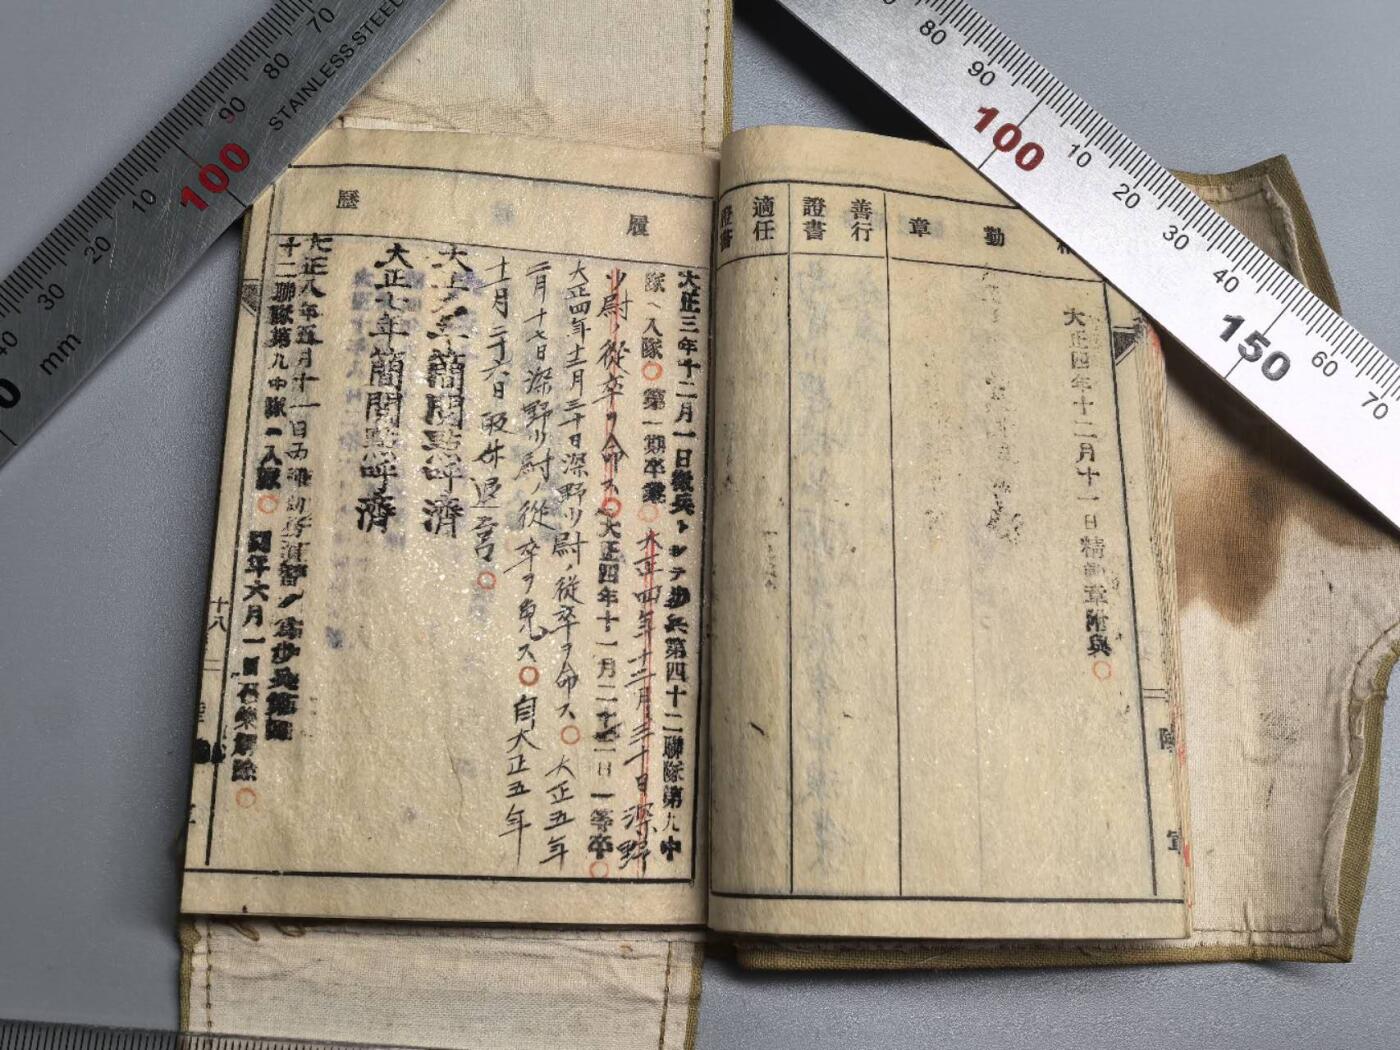 精
勤
章
大正四年十二月十一日精勤章附與〇
善行
證書
適任
證書
履
歷
大正三年十二月一日徵兵トシテ步兵第四十二聯隊第九中
隊ヘ入隊〇第一期卒業〇大正四年十二月三十日深野
リ尉ノ從卒ヲ命ス〇大正四年十一月二十二日一等卒〇
大正四年十二月三十日深野リ尉ノ從卒ヲ命ス〇大正五年
二月十七日深野リ尉ノ從卒ヲ免ス〇自大正五年
十一月二十六日
退營〇
大正六年簡閱點呼濟
大正七年簡閱點呼濟
大正八年五月十一日
演習ノ為步兵第四
十二聯隊第九中隊ヘ入隊〇同年六月一日召集解除〇
十八
陸
軍
STAINLESS STEEL
70
80
90
100
10
20
30
40
mm
80
90
100
10
20
30
40
150
60
70